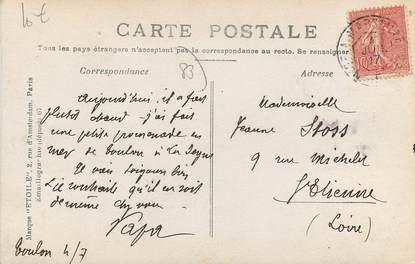 10 €
CARTE POSTALE
Tous les pays étrangers n'acceptent pas la correspondance au recto. Se renseigner
Correspondance
83
Adresse
Aujourd'hui, il a fait
plutôt chaud - j'ai fait
une petite promenade en
mer de Toulon à La Seyne
Je vais toujours bien
Je souhaite qu'il en soit
de même chez vous
Papa
Toulon 4/7
Mademoiselle
Jeanne Stoss
9 rue Michelet
St Etienne
(Loire)
Marque "ETOILE", 2, rue d'Amsterdam, Paris